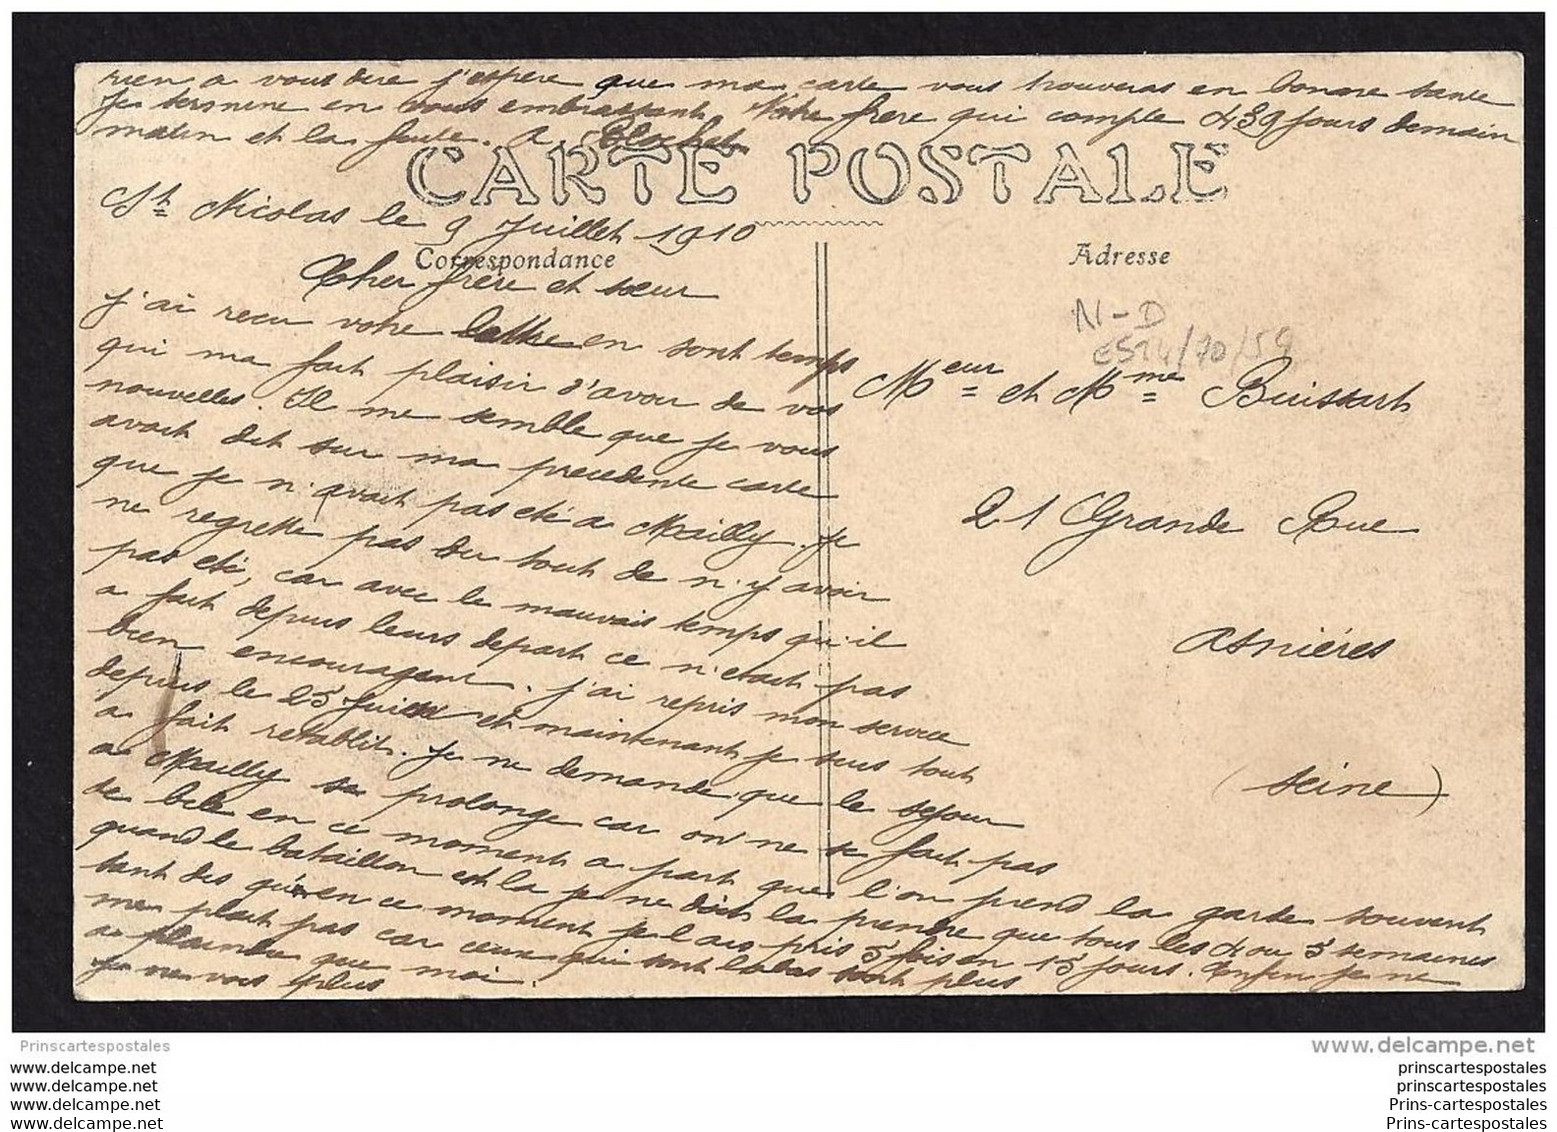 rien a vous dire j'espere que ma carte vous trouveras en bonne sante
Je termine en vous embrassant Votre frere qui compte 439 jours demain
matin et la fuite. A
CARTE POSTALE
St Nicolas le 9 Juillet 1910
Correspondance
Cher frère et sœur
J'ai recu votre lettre en sont temps
qui ma fait plaisir d'avoir de vos
nouvelles. Il me semble que je vous
avait dit sur ma precedente carte
que je n'avait pas eté a Mailly. Je
ne regrette pas du tout de n'y avoir
pas eté, car avec le mauvais temps qu'il
a fait depuis leurs depart ce n'etait pas
bien encourageant. J'ai repris mon service
depuis le 25 Juin et maintenant je suis tout
a fait retablit. Je ne demande que le sejour
a Mailly se prolonge car on ne se fait pas
de bile en ce moment a part que l'on prend la garde souvent
quand le bataillon est la je ne doit la prendre que tous les 4 ou 5 semaines
tant dis qu'en ce moment je l'ais pris 5 fois en 15 jours. Enfin je ne
me plait pas car ceux qui sont labas sont plus
a plaindre que moi.
Je ne vois plus
Adresse
N-D
EST4/70/59
Meur et Mme Buissart
21 Grande Rue
Asnières
(Seine)
Prinscartespostales
www.delcampe.net
www.delcampe.net
www.delcampe.net
www.delcampe.net
www.delcampe.net
prinscartespostales
prinscartespostales
Prins-cartespostales
Prins-cartespostales